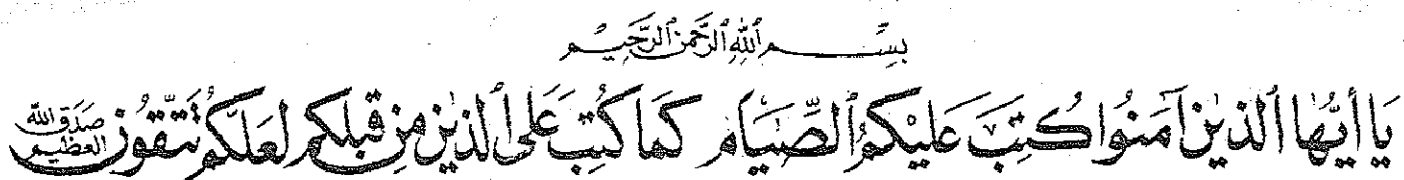 بِسْمِ ٱللَّهِ ٱلرَّحْمَٰنِ ٱلرَّحِيمِ
يَا أَيُّهَا ٱلَّذِينَ آمَنُوا كُتِبَ عَلَيْكُمُ ٱلصِّيَامُ كَمَا كُتِبَ عَلَى ٱلَّذِينَ مِن قَبْلِكُمْ لَعَلَّكُمْ تَتَّقُونَ صَدَقَ اللَّه العَظِيم